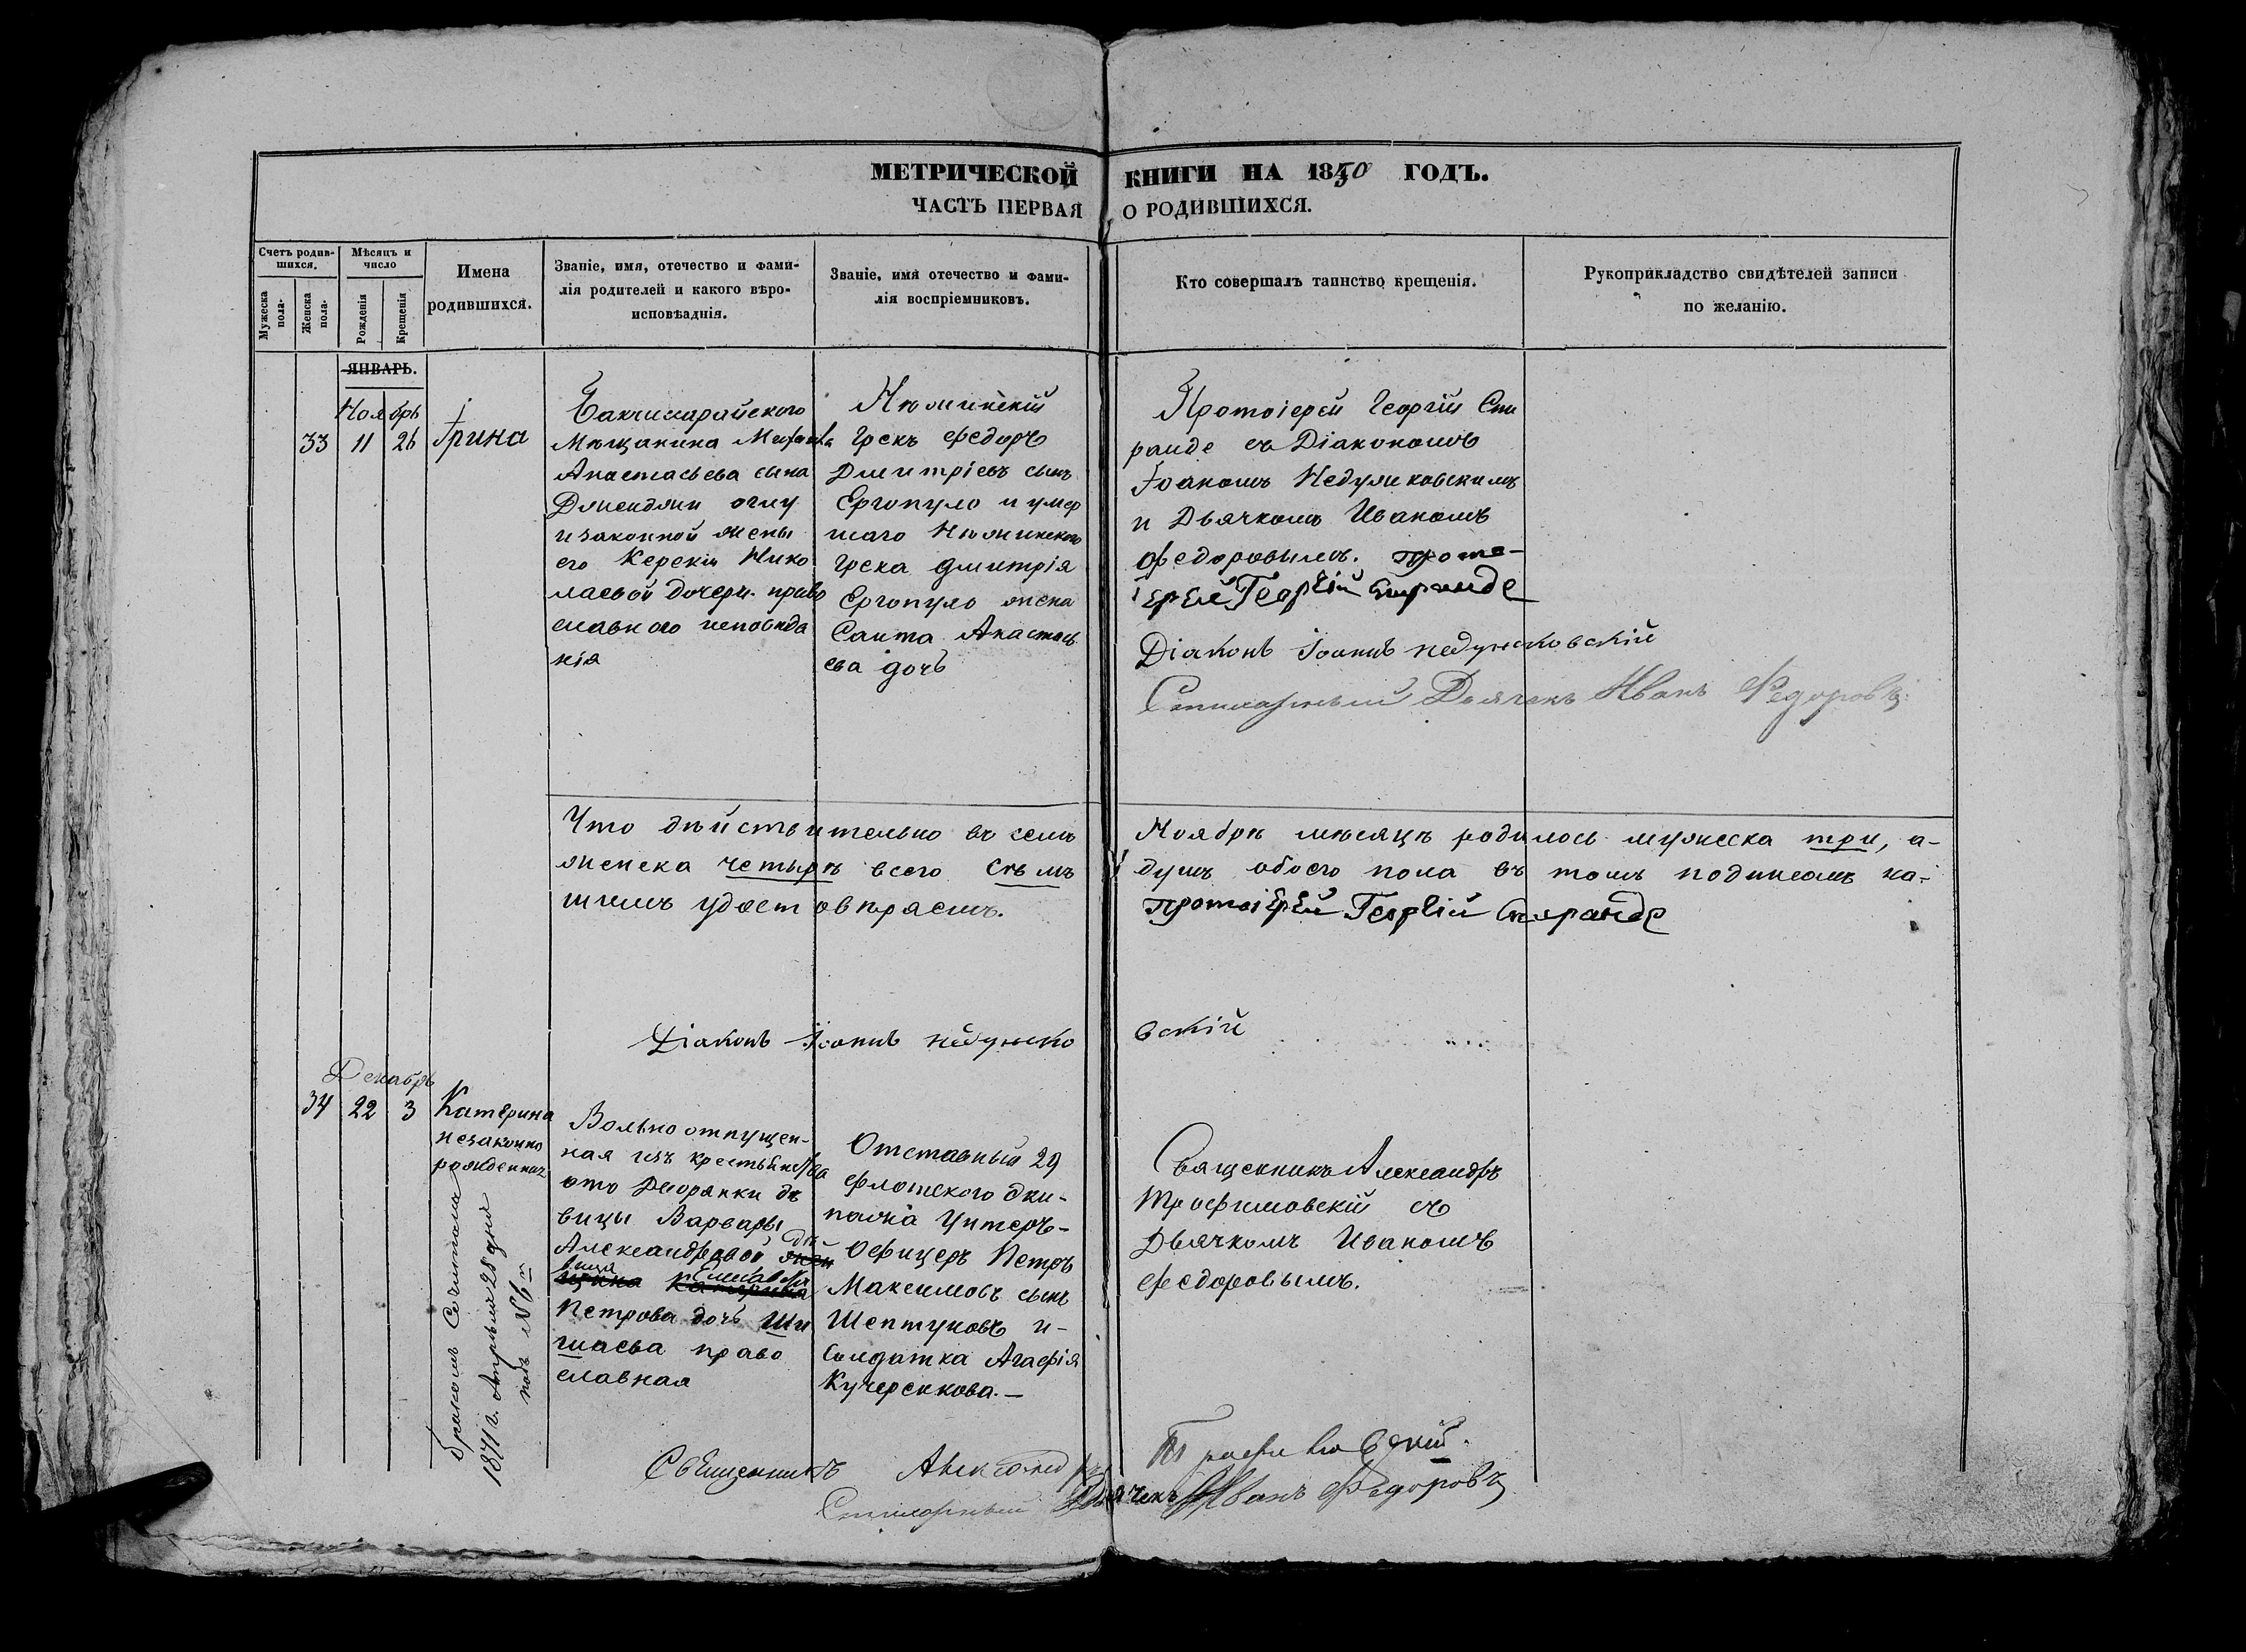 МЕТРИЧЕСКОЙ КНИГИ НА 1850 ГОДЪ.
ЧАСТЬ ПЕРВАЯ О РОДИВШИХСЯ.
Счетъ родив-
шихся.
Мужеска
пола.
Женска
пола.
Мѣсяцъ и
число
Рожденія
Крещенія
Имена
родившихся.
Званіе, имя, отечество и фами-
лія родителей и какого вѣро-
исповѣаднія.
Званіе, имя отечество и фами-
лія воспріемниковъ.
Кто совершалъ таинство крещенія.
Рукоприкладство свидѣтелей записи
по желанію.
ЯНВАРЬ.
Ноябрь
33 11 26 Ірина
Бакчисарайского
Мѣщанина
Анастасьева сына
оглу
и законной жены
его Кереки Нико
лаевой дочери право
славного исповѣда
нія
Нѣжинскій
Грекъ Федоръ
Дмитріевъ сынъ
Ергопуло и умер
шаго Нѣжинского
Грека Дмитрія
Ергопуло жена
Санта Анастась
ева дочь
Протоіерей Георгій Спи
ранде съ Діакономъ
Іоаномъ Недзунсковскимъ
и Дьячкомъ Иваномъ
Федоровымъ. Прото-
іерей Георгій Спиранде
Діаконъ Іоаннъ
Дьячекъ Иванъ Федоровъ
Что дѣйствительно въ семъ Ноябрѣ мѣсяцѣ родилось мужеска три, а-
женска четырѣ всего сѣмъ душъ обоего пола въ томъ подписомъ на-
шимъ удостовѣряемъ. Протоіерей Георгій Спиранде
Діаконъ Іоаннъ
вскій
Декабрь
34 22 3 Катерина
незаконно
рожденная
бракомъ Сочитана
1871 г. Апрѣля 28 дня
подъ № 6й
Вольноотпущен-
ная изъ крестьянства
ото Дворянки дѣ
вицы Варвары
Александровой дѣ
вица Елисавета
Петрова дочь Ши
шаева право
славная
Отставный 29
флотского эки-
пажа Унтеръ-
Офицеръ Петръ
Максимовъ сынъ
Шептуновъ и-
Солдатка Агафія
Кучеренкова.—
Священникъ Александръ
Трофимовскій съ
Дьячкомъ Иваномъ
Федоровымъ.
Священникъ Александръ Трофимовскій.
Дьячекъ Иванъ Федоровъ